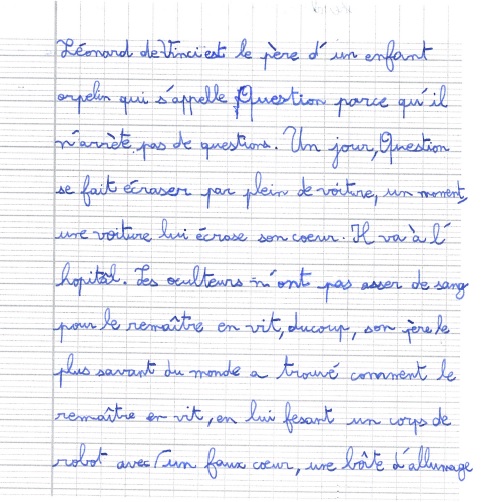 Léonard de Vinci est le père d'un enfant
orpelin qui s'appelle Question parce qu'il
n'arrète pas de questions. Un jour, Question
se fait écraser par plein de voiture, un moment,
une voiture lui écrase son coeur. Il va à l'
hopitâl. Les oculteurs n'ont pas asser de sang
pour le remaître en vit, ducoup, son père le
plus savant du monde a trouvé comment le
remaître en vit, en lui fesant un corps de
robot avec un faux coeur, une boîte d'allumage